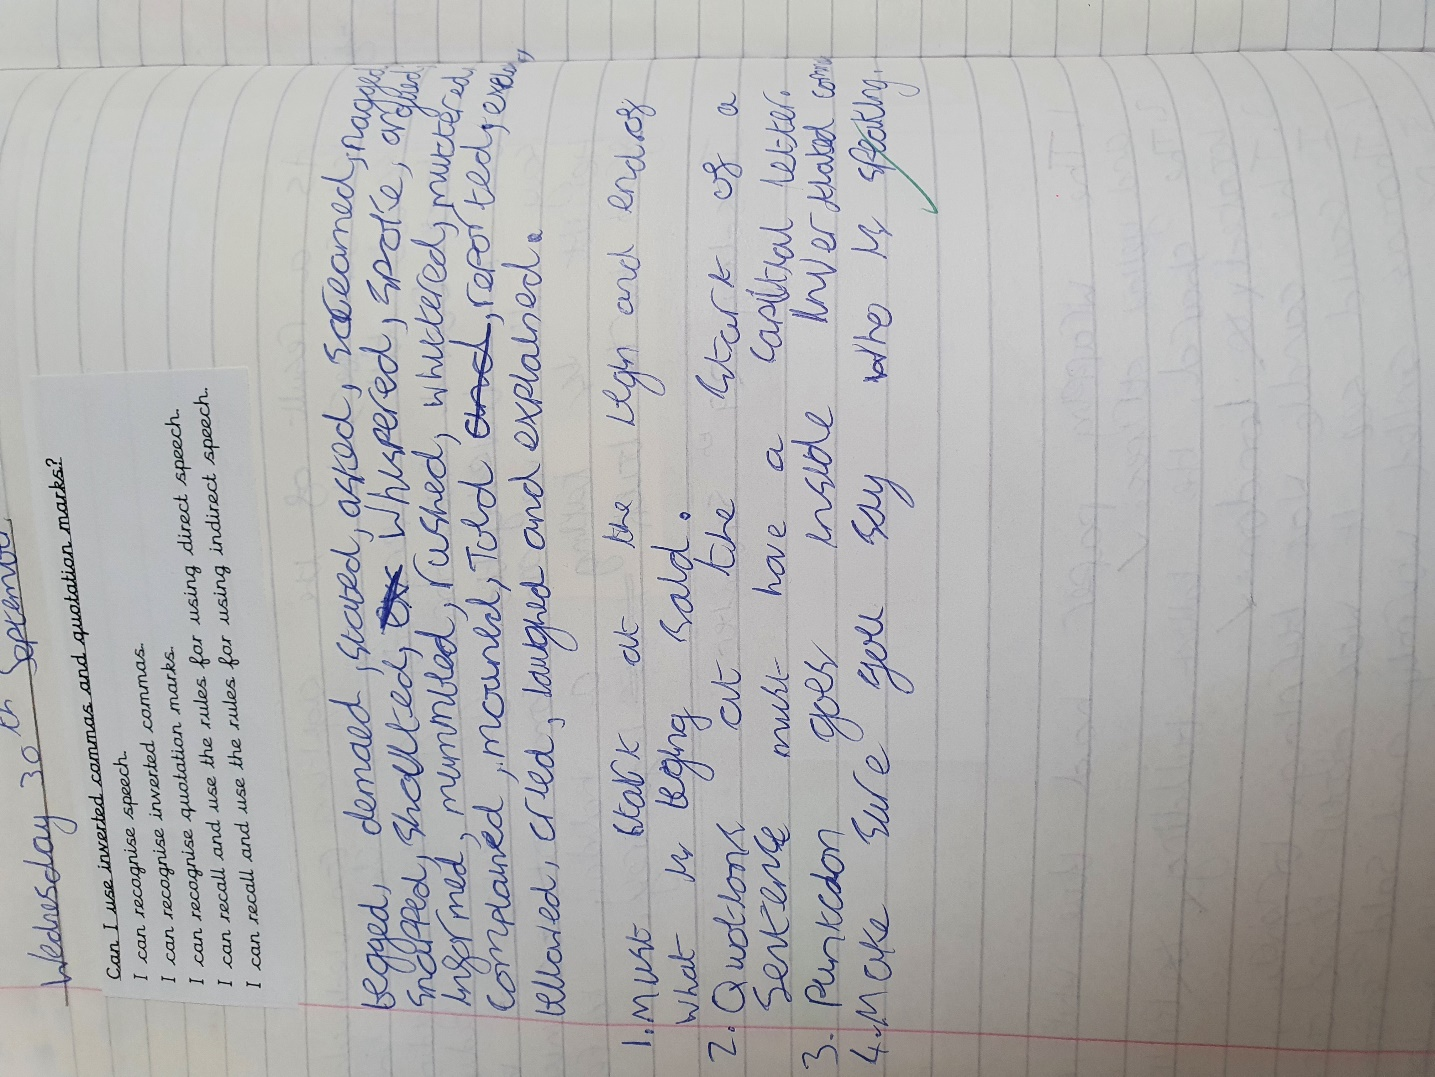 Wednesday 30th September
Can I use inverted commas and quotation marks?
I can recognise speech.
I can recognise inverted commas.
I can recognise quotation marks.
I can recall and use the rules for using direct speech.
I can recall and use the rules for using indirect speech.
begged, demaed, stated, asked, screamed, nagged,
snapped, shouted, whispered, spoke, argued,
informed, mummbled, rushed, whickered, muttered,
complained, mouned, Told and, reported,
bellowed, cried, laughed and explained.
1. Must start at the begn and end of
what is beging said.
2. Quotions at the start of a
sentence must have a capital letter.
3. Punkcdon goes inside inver
4. Make sure you say who is speaking.